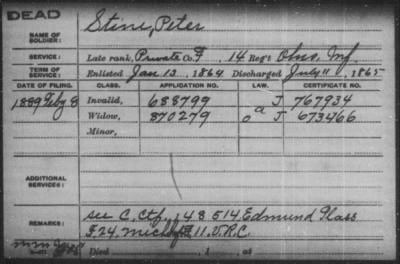 DEAD
NAME OF SOLDIER: Stine, Peter
SERVICE: Late rank, Private Co. F, 14 Reg't Ohio Inf.
TERM OF SERVICE: Enlisted Jan 13, 1864 Discharged July 11, 1865
DATE OF FILING. CLASS. APPLICATION NO. LAW. CERTIFICATE NO.
1889 Feby 8 Invalid, 688799 J 767934
Widow, 870279 a J 673466
Minor,
ADDITIONAL SERVICES:
REMARKS: see C. Ctf. 148514, Edmund Glass
F. 24, Mich 11. V.R.C.
Died , 1 , at